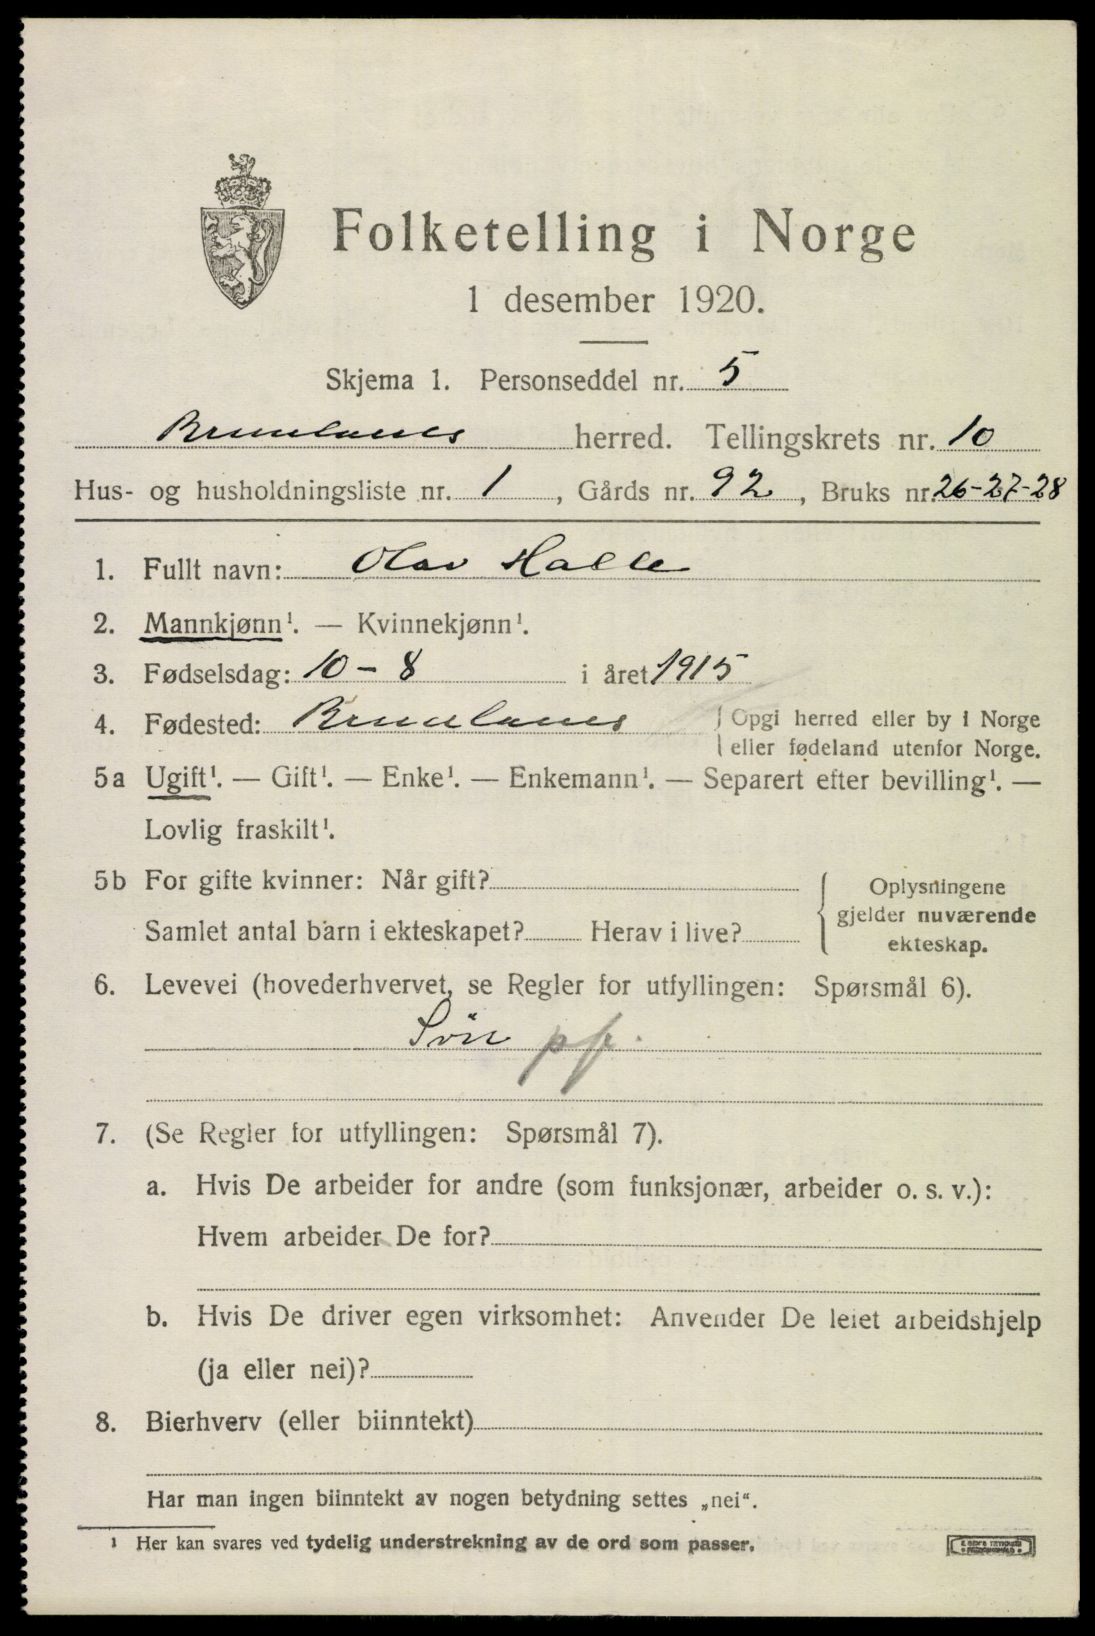 Folketelling i Norge
1 desember 1920.
Skjema 1. Personseddel nr. 5
Brunlanes herred. Tellingskrets nr. 10
Hus- og husholdningsliste nr. 1, Gårds nr. 92, Bruks nr. 26-27-28
1. Fullt navn: Olav Halle
2. Mannkjønn¹. — Kvinnekjønn¹.
3. Fødselsdag: 10 - 8 i året 1915
4. Fødested: Brunlanes
Opgi herred eller by i Norge
eller fødeland utenfor Norge.
5a Ugift¹. — Gift¹. — Enke¹. — Enkemann¹. — Separert efter bevilling¹. —
Lovlig fraskilt¹.
5b For gifte kvinner: Når gift?
Samlet antal barn i ekteskapet? Herav i live?
Oplysningene
gjelder nuværende
ekteskap.
6. Levevei (hovederhvervet, se Regler for utfyllingen: Spørsmål 6).
Sön pf.
7. (Se Regler for utfyllingen: Spørsmål 7).
a. Hvis De arbeider for andre (som funksjonær, arbeider o. s. v.):
Hvem arbeider De for?
b. Hvis De driver egen virksomhet: Anvender De leiet arbeidshjelp
(ja eller nei)?
8. Bierhverv (eller biinntekt)
Har man ingen biinntekt av nogen betydning settes „nei“.
¹ Her kan svares ved tydelig understrekning av de ord som passer.